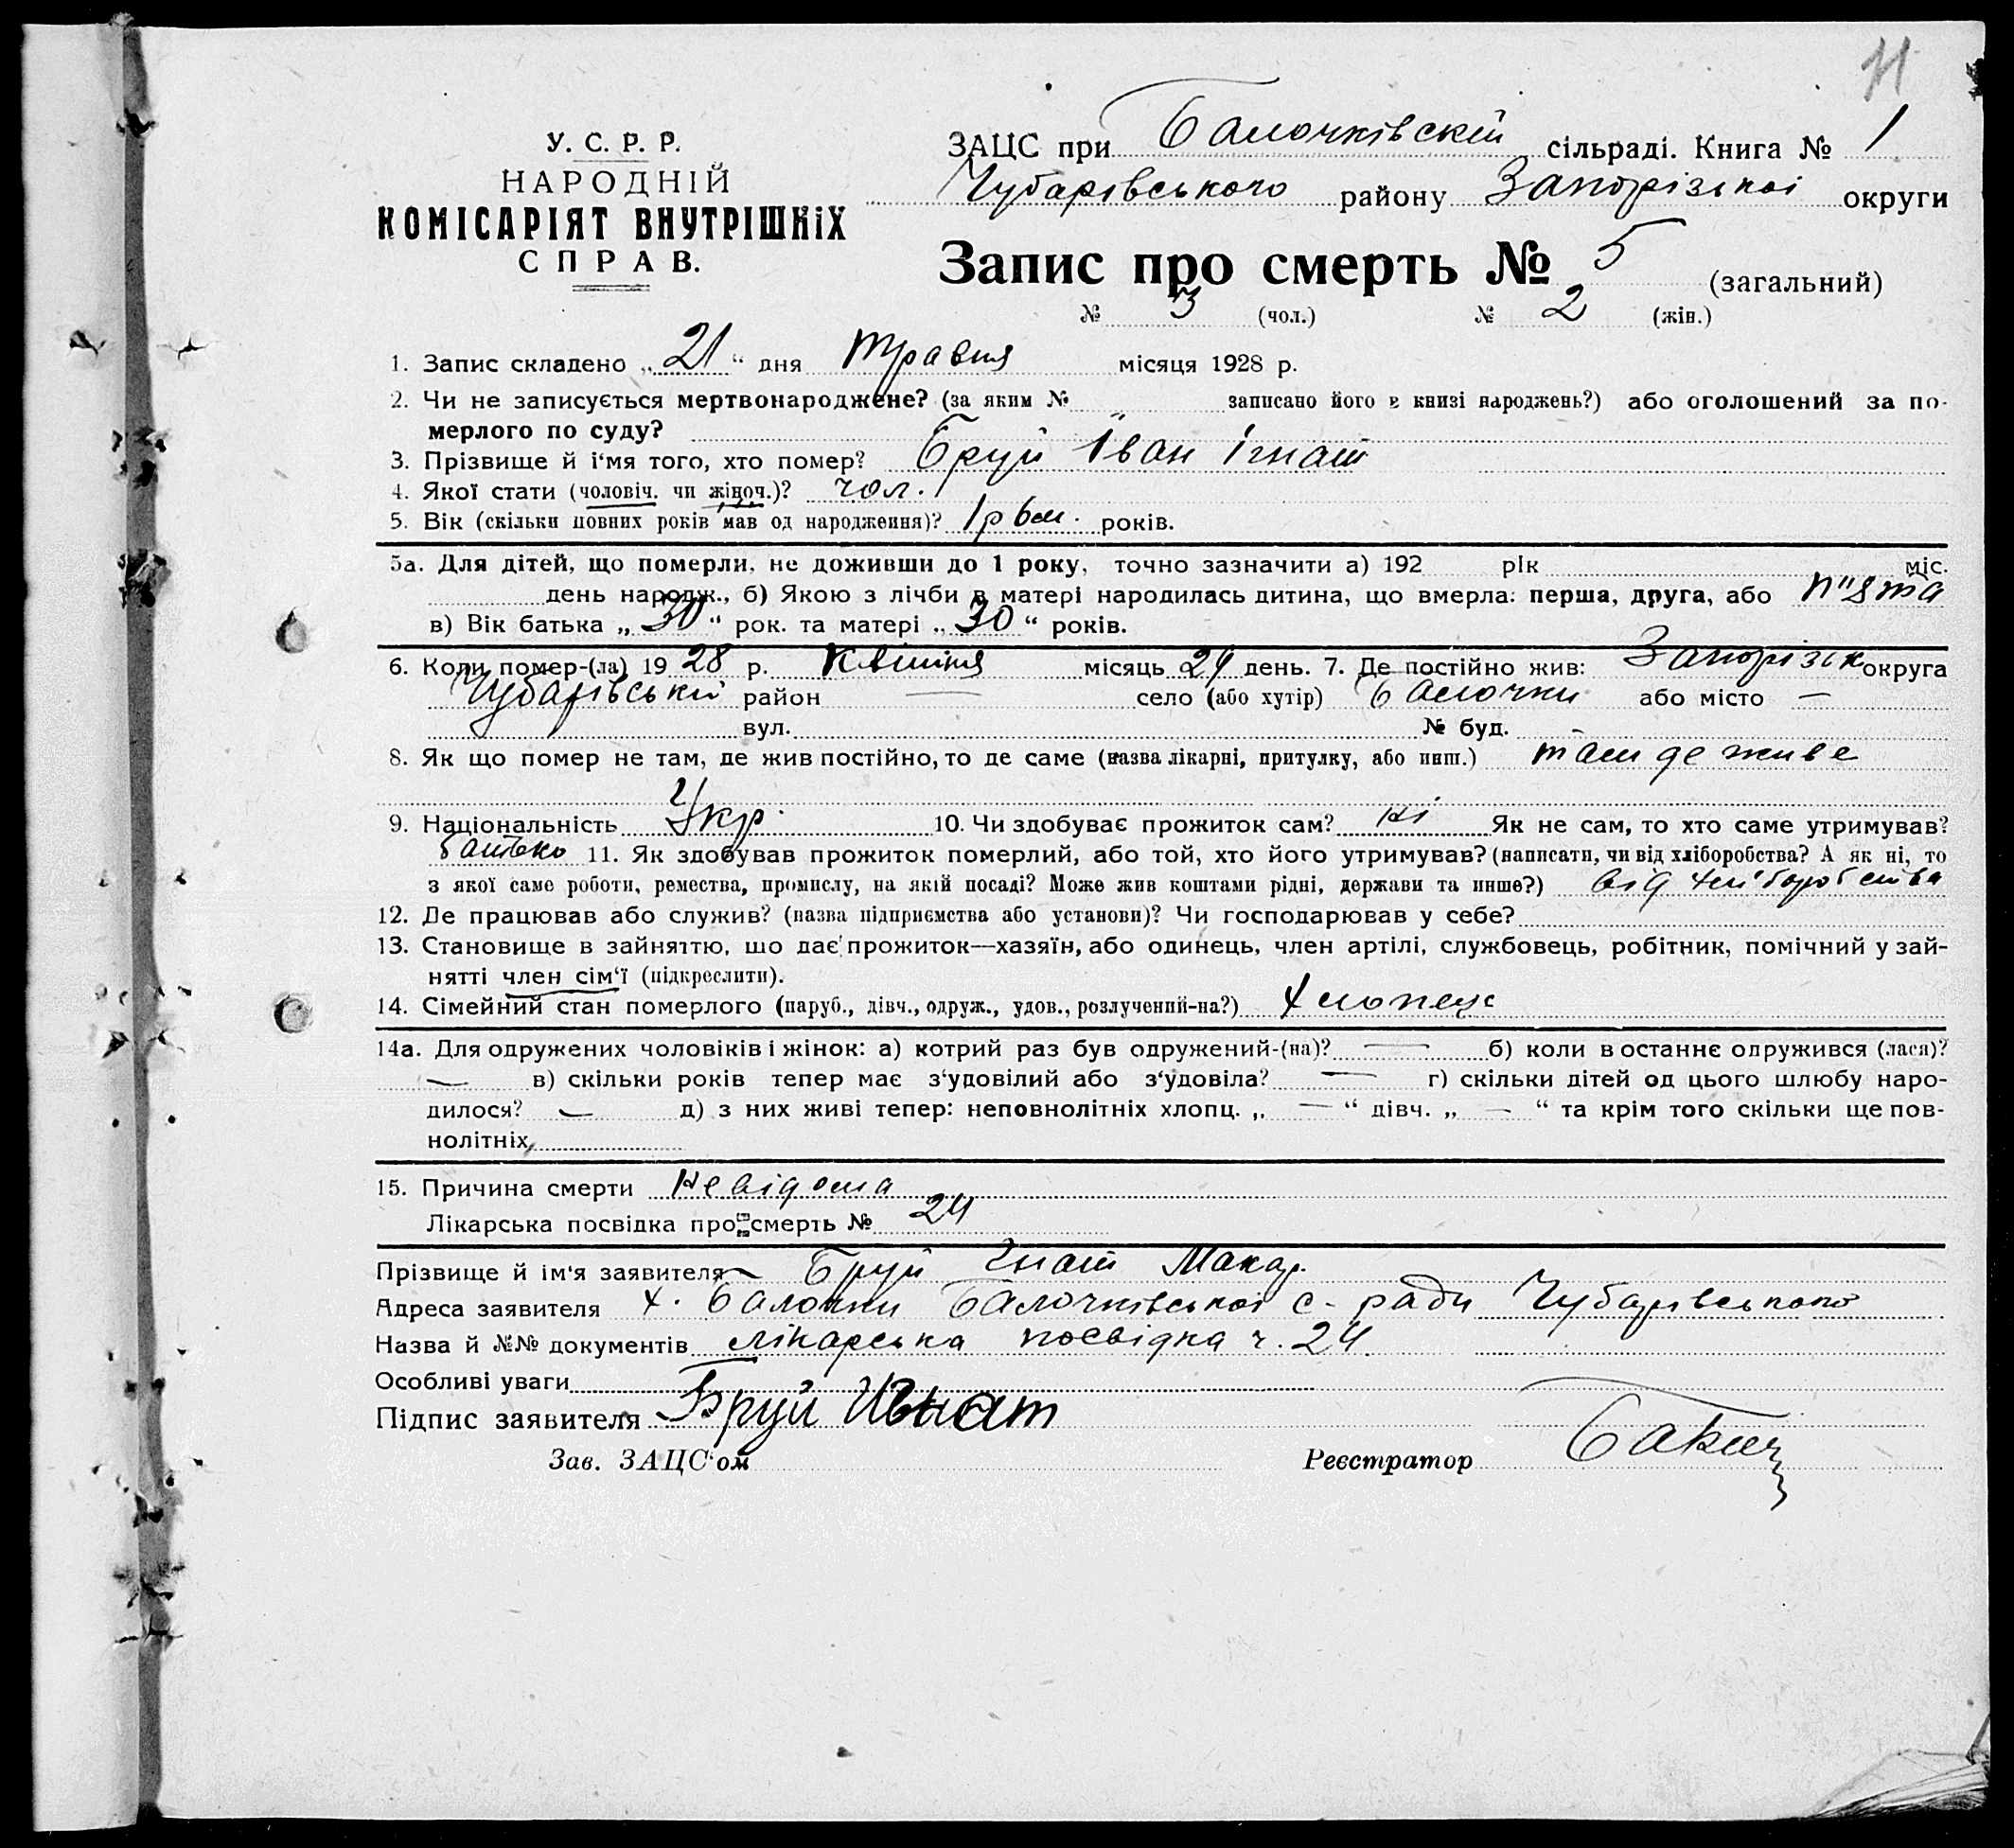 11
У. С. Р. Р.
НАРОДНІЙ
КОМІСАРІЯТ ВНУТРІШНІХ
СПРАВ.
ЗАЦС при Балочківскій сільраді. Книга № 1
Чубарівського району Запорізької округи
Запис про смерть № 5 (загальний)
№ 3 (чол.) № 2 (жін.)
1. Запис складено „21“ дня травня місяця 1928 р.
2. Чи не записується мертвонароджене? (за яким № „ записано його в книзі народжень?) або оголошений за по-
мерлого по суду?
3. Прізвище й і‘мя того, хто помер? Бруй Іван Ігнат
4. Якої стати (чоловіч. чи жіноч.)? чол.
5. Вік (скільки повних років мав од народження)? 1 р 6 м. років.
5а. Для дітей, що померли, не доживши до 1 року, точно зазначити а) 192 рік міс.
день народж., б) Якою з лічби в матері народилась дитина, що вмерла: перша, друга, або п"ята
в) Вік батька „30“ рок. та матері „30“ років.
6. Коли помер-(ла) 1928 р. квітня місяць 24 день. 7. Де постійно жив: Запорізьк округа
Чубарівській район — село (або хутір) Балочки або місто —
вул. № буд.
8. Як що помер не там, де жив постійно, то де саме (назва лікарні, притулку, або инш.) там де живе
9. Національність Укр. 10. Чи здобуває прожиток сам? ні Як не сам, то хто саме утримував?
батько 11. Як здобував прожиток померлий, або той, хто його утримував? (написати, чи від хліборобства? А як ні, то
з якої саме роботи, ремества, промислу, на якій посаді? Може жив коштами рідні, держави та инше?) від хліборобства
12. Де працював або служив? (назва підприємства або установи)? Чи господарював у себе?
13. Становище в зайняттю, що дає прожиток—хазяїн, або одинець, член артілі, службовець, робітник, помічний у зай-
нятті член сім‘ї (підкреслити).
14. Сімейний стан померлого (паруб., дівч., одруж., удов., розлучений-на?) хлопець
14а. Для одружених чоловіків і жінок: а) котрий раз був одружений-(на)? — б) коли в останнє одружився (лася)?
— в) скільки років тепер має з‘удовілий або з‘удовіла? — г) скільки дітей од цього шлюбу наро-
дилося? — д) з них живі тепер: неповнолітніх хлопц. „ — “ дівч. „ — “ та крім того скільки ще пов-
нолітніх
15. Причина смерти невідома
Лікарська посвідка про смерть № 24
Прізвище й ім‘я заявителя Бруй Гнат Макар.
Адреса заявителя х. Балочки Балочківської с-ради Чубарівського
Назва й №№ документів лікарська посвідка ч. 24
Особливі уваги
Підпис заявителя Бруй Игнат
Зав. ЗАЦС‘ом Реєстратор